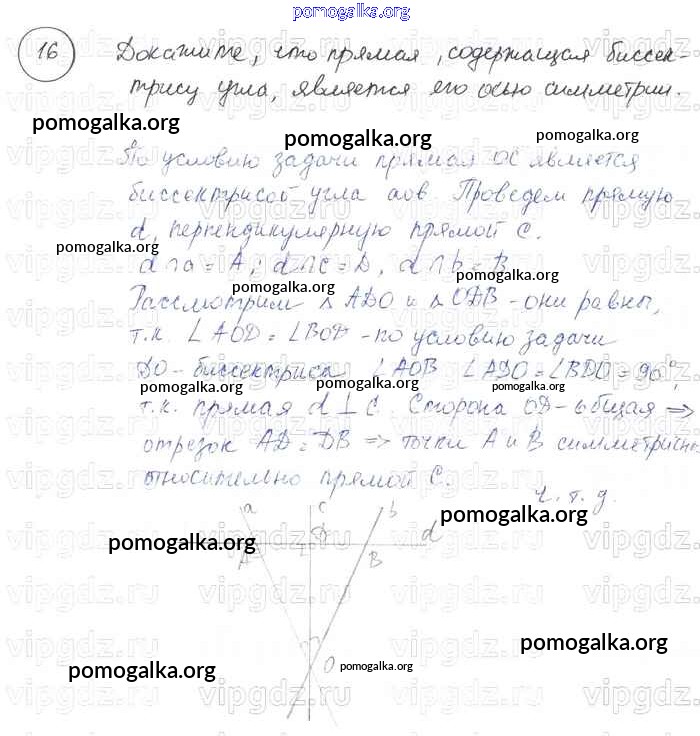 pomogalka.org
16 Докажите, что прямая, содержащая биссек-
трису угла, является его осью симметрии.
pomogalka.org pomogalka.org pomogalka.org
По условию задачи прямая OC является
биссектрисой угла aob. Проведем прямую
d, перпендикулярную прямой C.
pomogalka.org
d∩a=A; d∩c=D, d∩b=B
pomogalka.org
Рассмотрим △ADO и △ODB - они равны,
т.к. ∠AOD=∠BOD - по условию задачи
DO - биссектриса ∠AOB ∠ADO=∠BDO=90°,
pomogalka.org pomogalka.org pomogalka.org
т.к. прямая d⊥C. Сторона OD - общая ⇒
отрезок AD=DB ⇒ точки A и B симметричны
относительно прямой C.
ч.т.д.
pomogalka.org
a c b
D d
A B
pomogalka.org
O
pomogalka.org pomogalka.org pomogalka.org
vipgdz.ru vipgdz.ru vipgdz.ru